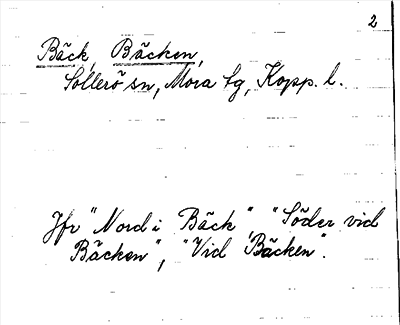 2
Bäck, Bäcken,
Sollerö sn, Mora tg, Kopp. l.
Jfr "Nord i Bäck", "Söder vid
Bäcken", "Vid Bäcken".